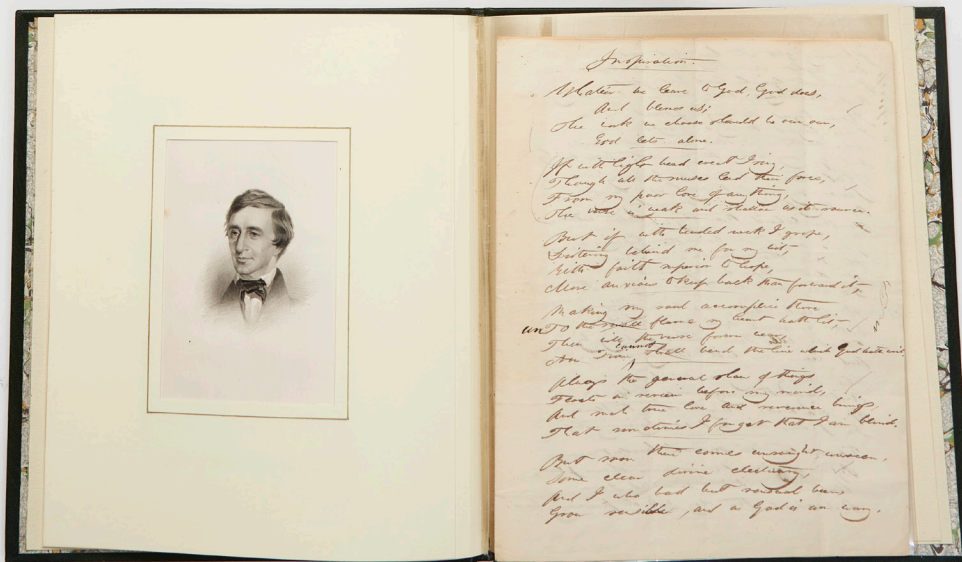 Inspiration.
Whate'er we leave to God, God does,
And blesses us;
The work we choose should be our own,
God lets alone.
If with light head erect I sing,
Though all the muses lend their force,
From my poor love of anything,
The verse is weak and shallow as its source.
But if with bended neck I grope,
Listening behind me for my wit,
With faith superior to hope,
More anxious to keep back than forward it,
Making my soul accomplice there
un To the flame my heart hath lit,
Then will the verse forever wear,
cannot
Time bend the line which God hath writ
Always the general show of things
Floats in review before my mind,
And such true love and reverence brings,
That sometimes I forget that I am blind.
But soon there comes unsought unseen,
Some clear divine electuary,
And I who had but sensual been
Grow sensible, and as God is am wary.